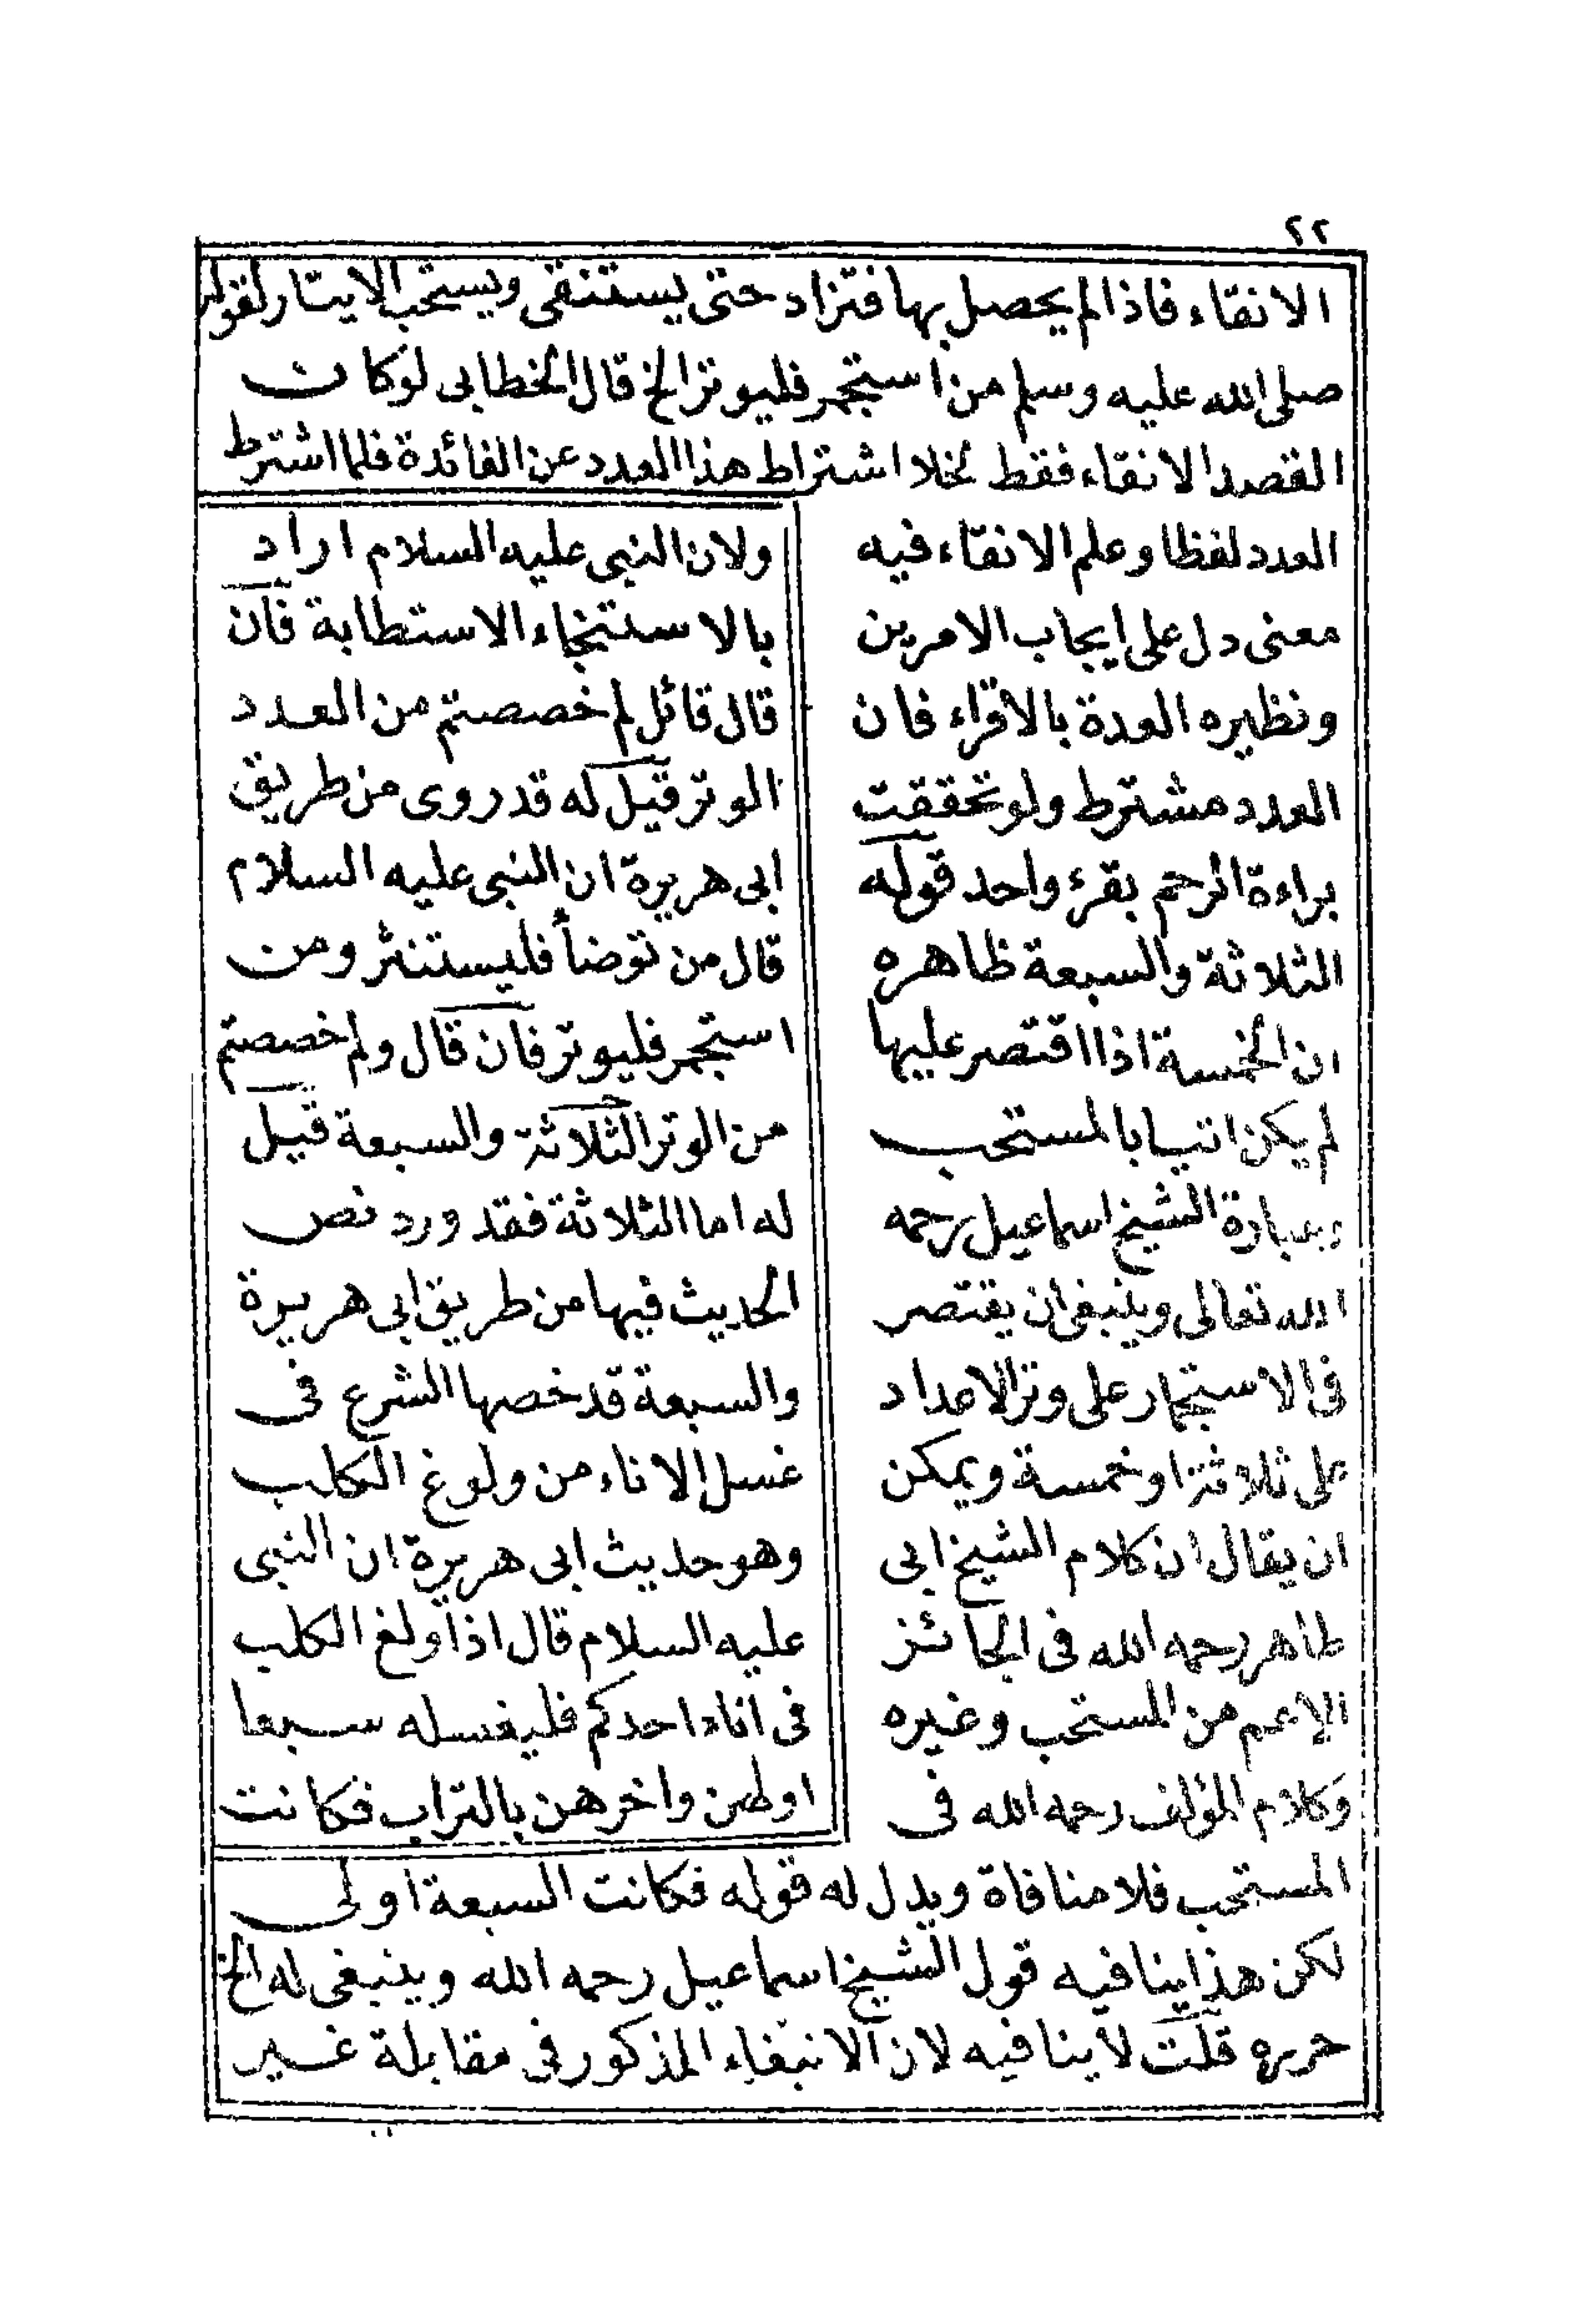 ٢٢
الانقاء فاذا لم يحصل بها فتزاد حتى يستنقى ويستحب الايتار لقوله
صلى الله عليه وسلم من استجمر فليوتر الخ قال الخطابى لوكان
القصد الانقاء فقط لخلا اشتراط هذا العدد عن الفائدة فلما اشترط
العدد لفظا وعلم الانقاء فيه
معنى دل على ايجاب الامرين
ونظيره العدة بالاقراء فان
العدد مشترط ولو تحققت
براءة الرحم بقرء واحد قوله
الثلاثة والسبعة ظاهره
ان الخمسة اذا اقتصر عليها
لم يكن اتيا بالمستحب
وعبارة الشيخ اسماعيل رحمه
الله تعالى وينبغى ان يقتصر
فى الاستجمار على وتر الاعداد
على ثلاثة او خمسة ويمكن
ان يقال ان كلام الشيخ ابى
طاهر رحمه الله فى الجائز
الاعم من المستحب وغيره
وكلام المؤلف رحمه الله فى
ولان النبى عليه السلام اراد
بالاستنجاء الاستطابة فان
قال قائل لم خصصتم من العدد
الوتر قيل له قد روى من طريق
ابى هريرة ان النبى عليه السلام
قال من توضأ فليستنثر ومن
استجمر فليوتر فان قال ولم خصصتم
من الوتر الثلاثة والسبعة قيل
له اما الثلاثة فقد ورد نص
الحديث فيها من طريق ابى هريرة
والسبعة قد خصها الشرع فى
غسل الاناء من ولوغ الكلب
وهو حديث ابى هريرة ان النبى
عليه السلام قال اذا ولغ الكلب
فى اناء احدكم فليغسله سبعا
اولهن واخرهن بالتراب فكانت
المستحب فلا منافاة ويدل له قوله فكانت السبعة اولى
لكن هذا ينافيه قول الشيخ اسماعيل رحمه الله وينبغى له الخ
حرره قلت لا ينافيه لان الانبغاء المذكور فى مقابلة غير